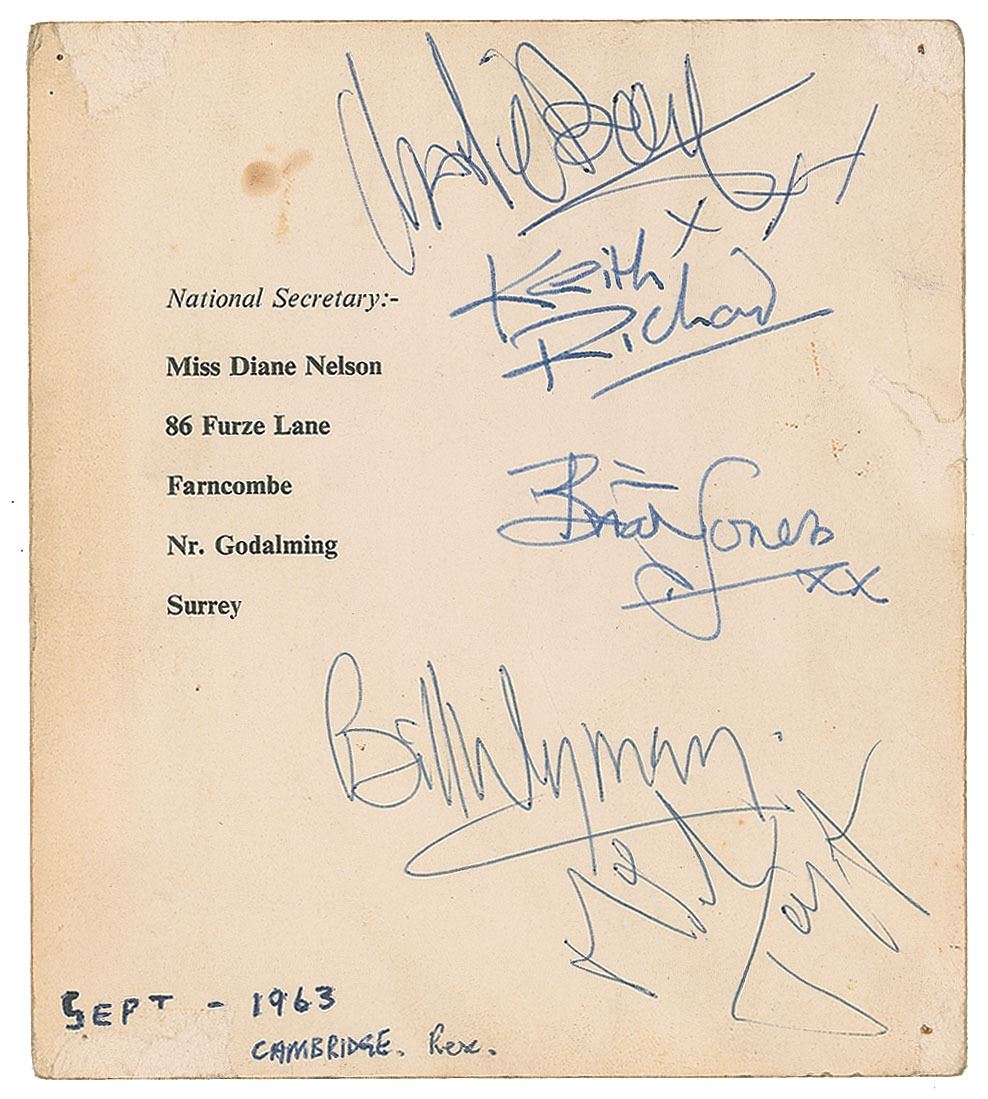 Charlie
x
Keith
Richard
National Secretary:-
Miss Diane Nelson
86 Furze Lane
Farncombe
Nr. Godalming
Surrey
Brian Jones
xx
Bill Wyman.
SEPT - 1963
CAMBRIDGE. Rex.